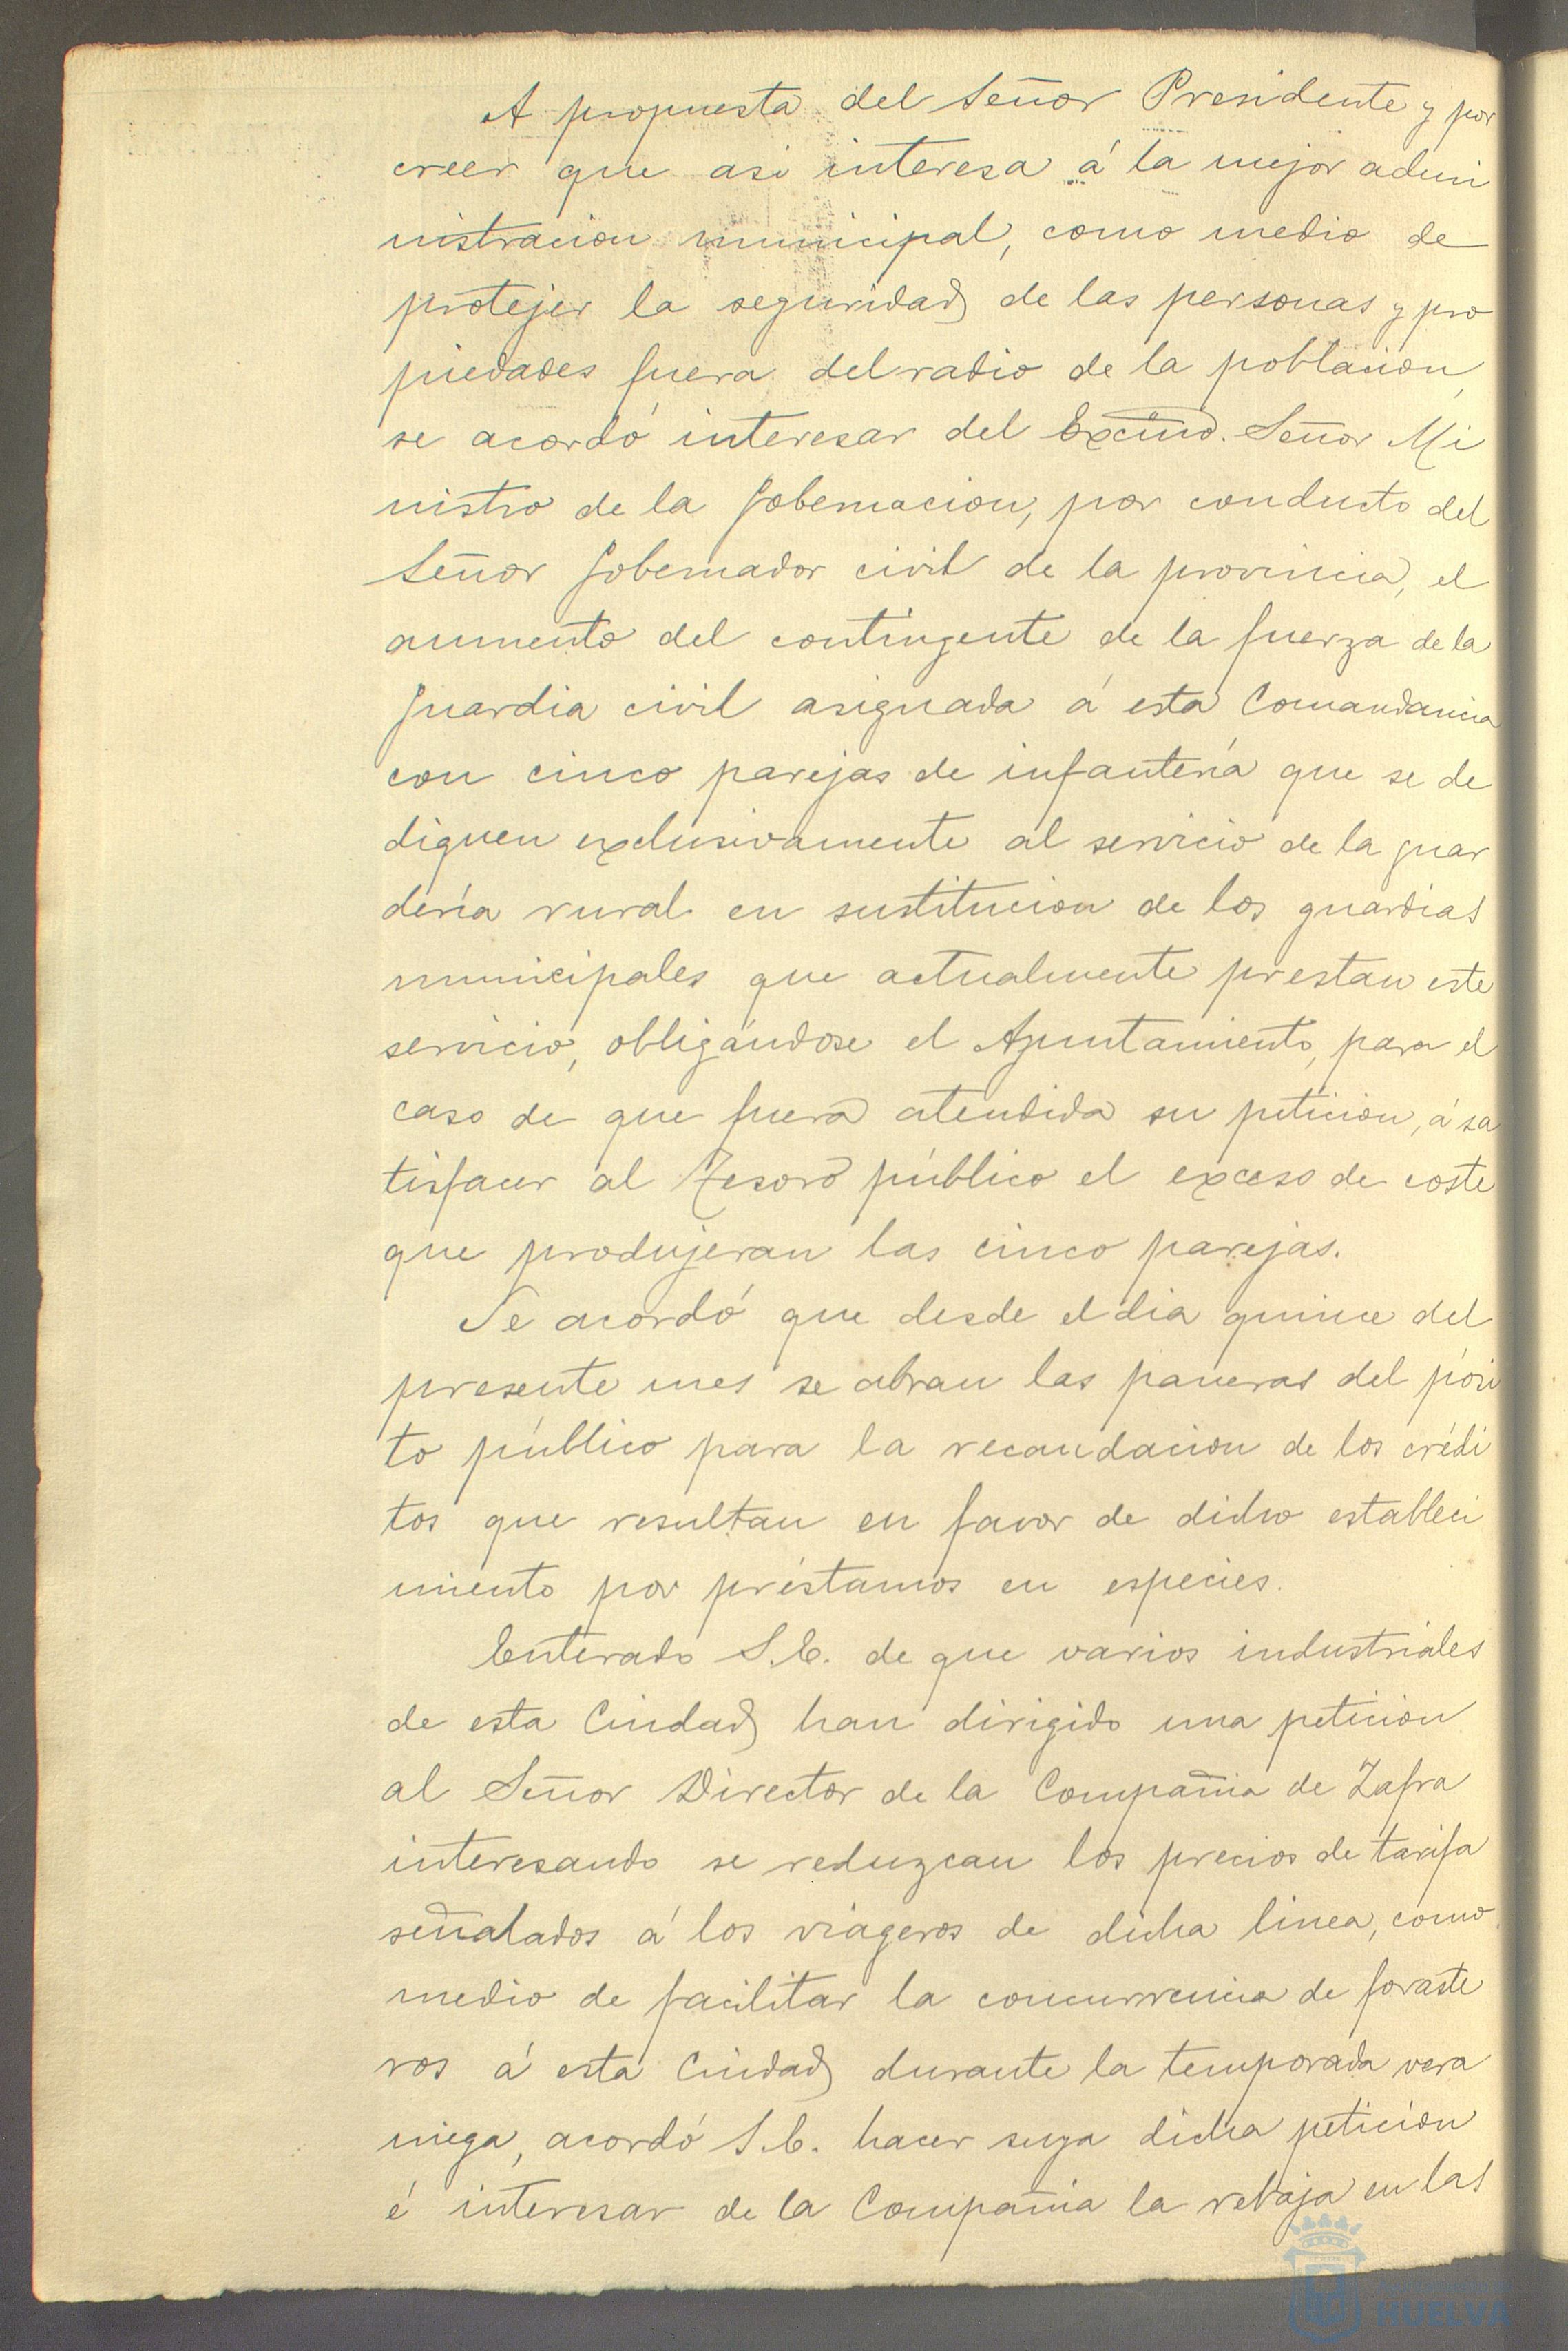 A propuesta del Señor Presidente y por
creer que asi interesa á la mejor admi
nistracion municipal, como medio de
protejer la seguridad de las personas y pro
piedades fuera del radio de la poblacion,
se acordó interesar del Excmo. Señor Mi
nistro de la Gobernacion, por conducto del
Señor Gobernador civil de la provincia, el
aumento del contingente de la fuerza de la
Guardia civil asignada á esta Comandancia
con cinco parejas de infantería que se de
diquen exclusivamente al servicio de la guar
dería rural en sustitucion de los guardias
municipales que actualmente prestan este
servicio, obligándose el Ayuntamiento, para el
caso de que fuera atendida su peticion, á sa
tisfacer al Tesoro público el exceso de coste
que produjeran las cinco parejas.
Se acordó que desde el dia quince del
presente mes se abran las paneras del pósi
to público para la recaudacion de los crédi
tos que resultan en favor de dicho estableci
miento por préstamos en especies.
Enterado S.E. de que varios industriales
de esta Ciudad han dirigido una peticion
al Señor Director de la Compañia de Zafra
interesando se reduzcan los precios de tarifa
señalados á los viageros de dicha linea, como
medio de facilitar la concurrencia de foraste
ros á esta Ciudad durante la temporada vera
niega, acordó S.E. hacer suya dicha peticion
é interesar de la Compañia la rebaja en las
HUELVA